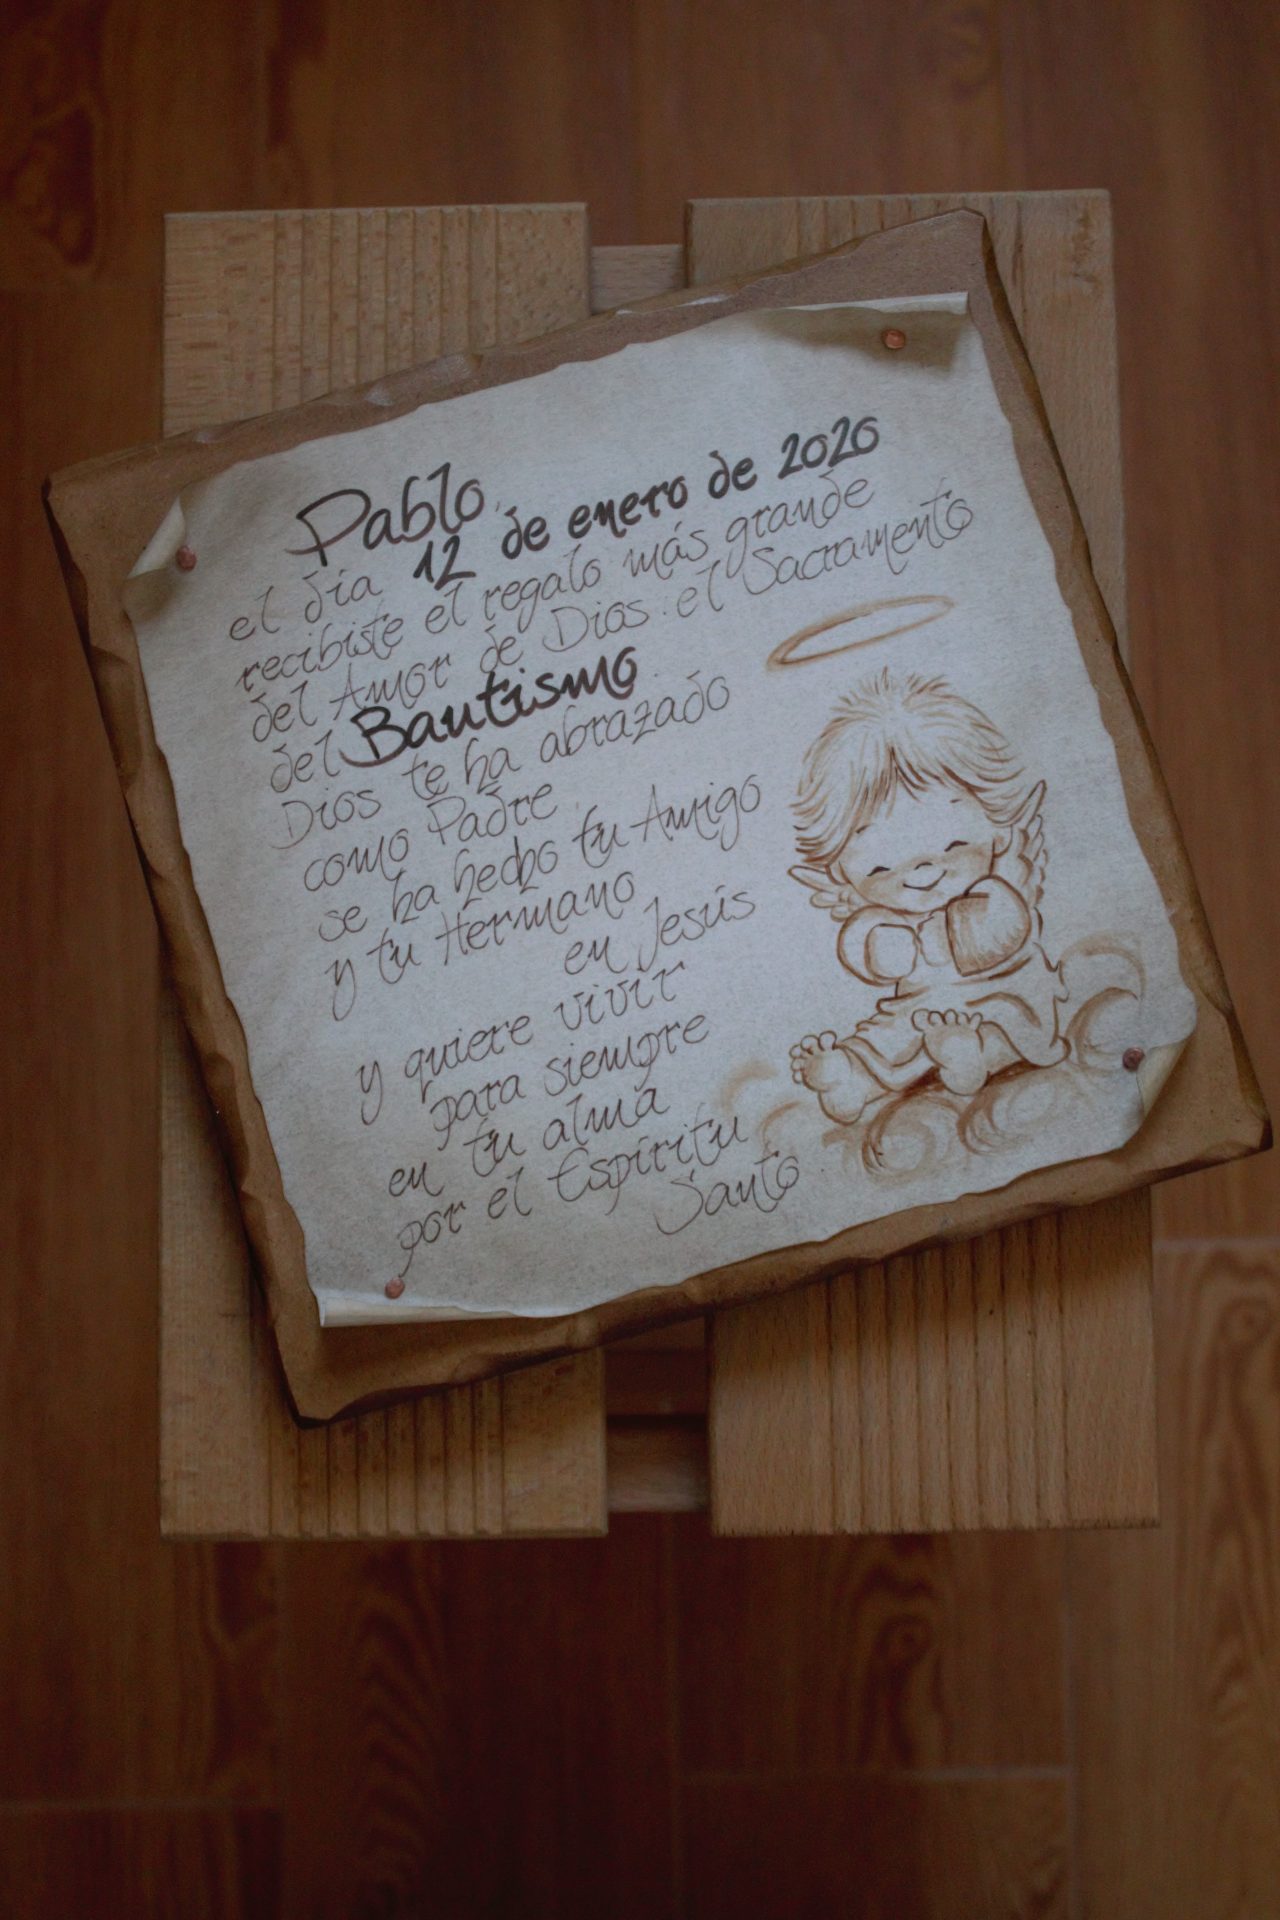 Pablo,
el día 12 de enero de 2020
recibiste el regalo más grande
del Amor de Dios: el Sacramento
del Bautismo.
Dios te ha abrazado
como Padre
se ha hecho tu Amigo
y tu Hermano
en Jesús
y quiere vivir
para siempre
en tu alma
por el Espíritu
Santo.